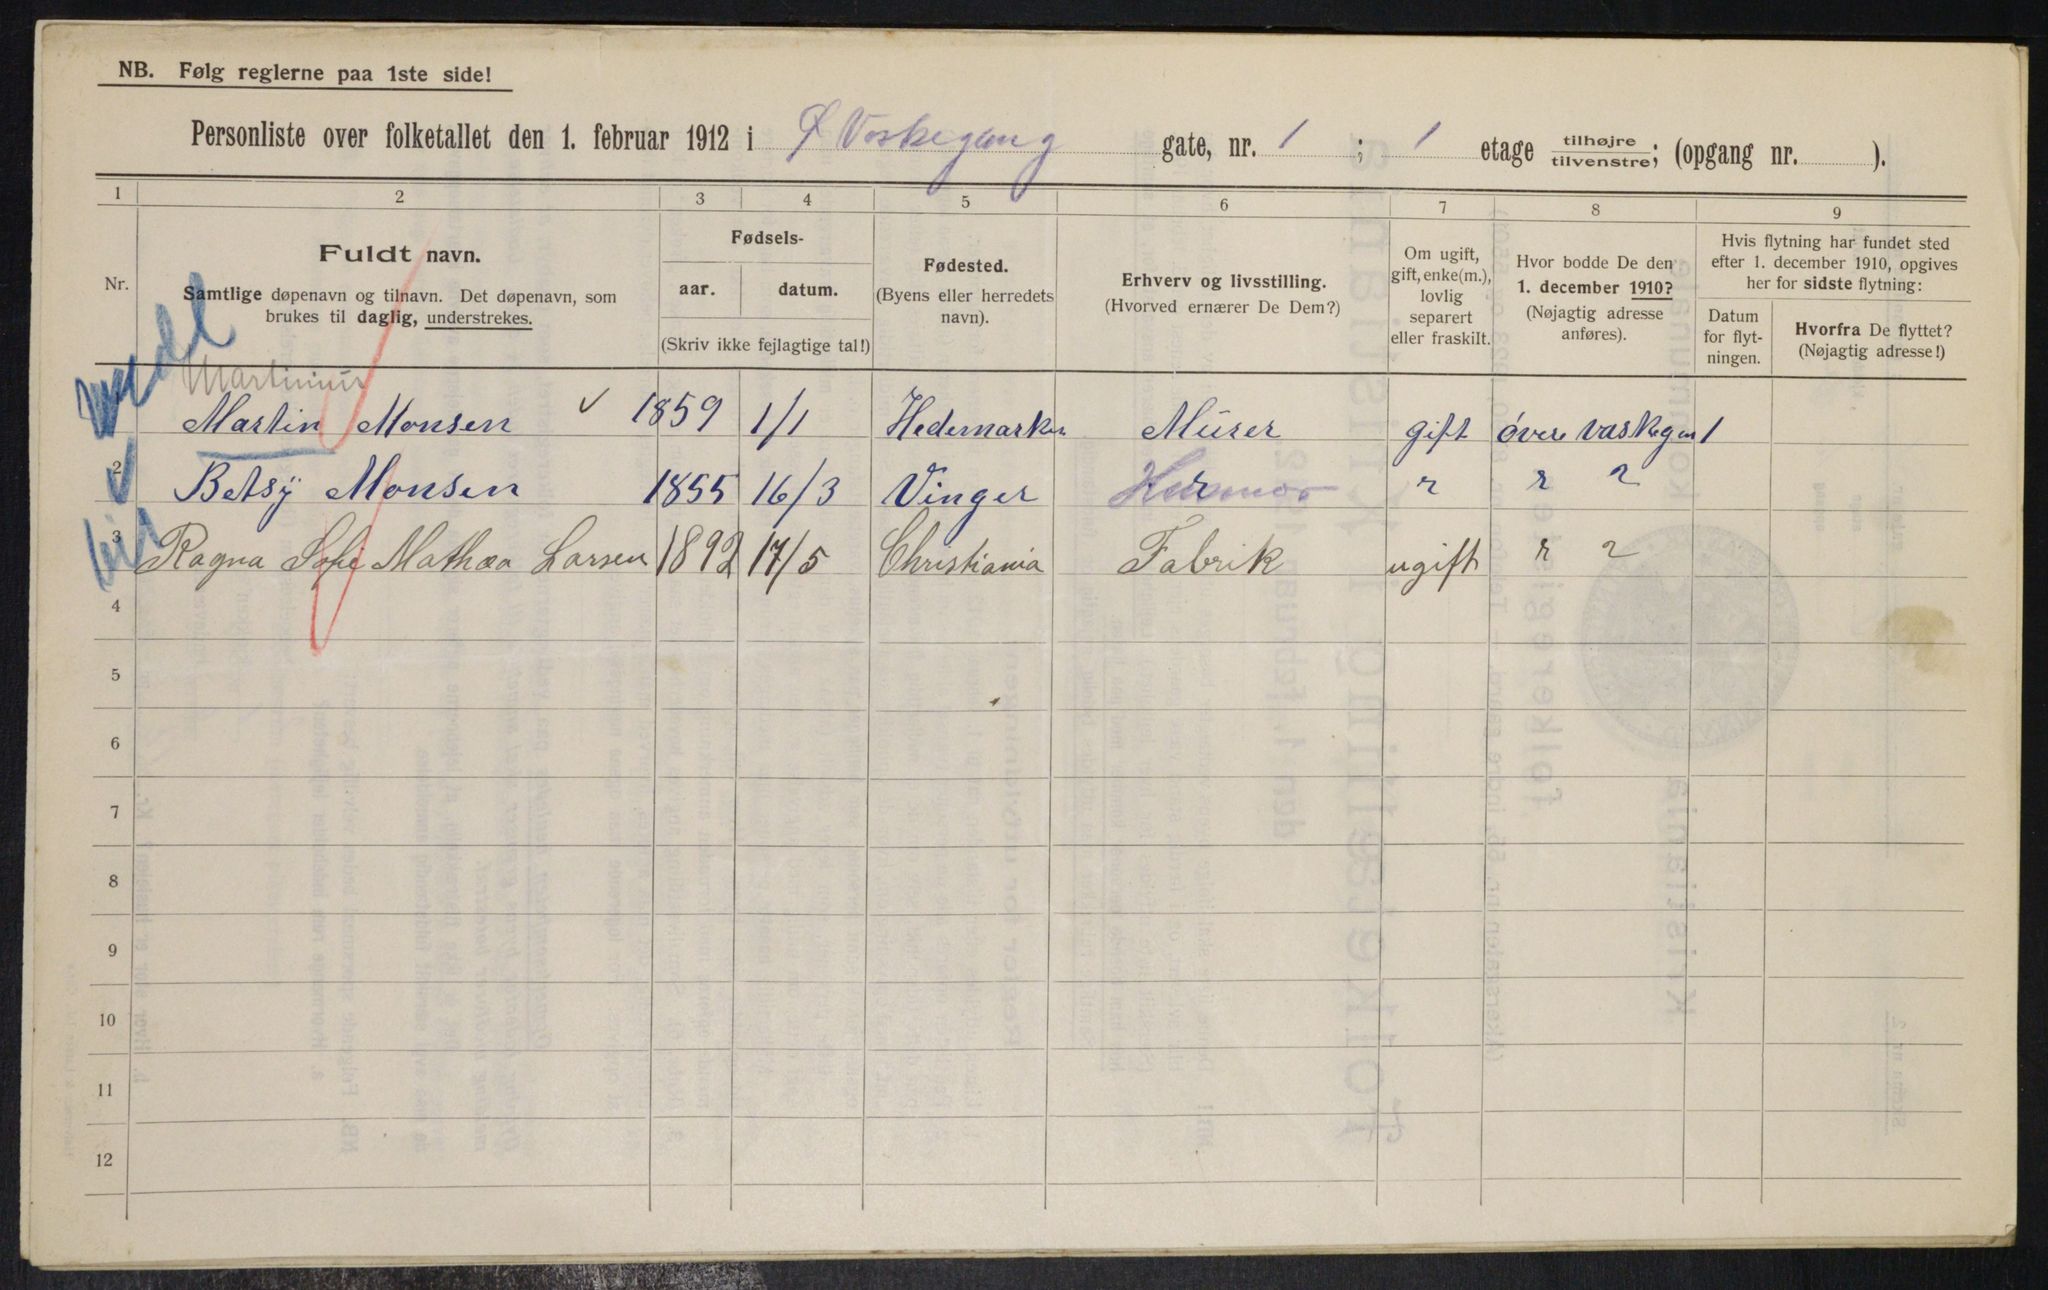 NB. Følg reglerne paa 1ste side!
Personliste over folketallet den 1. februar 1912 i Ø Vaskegang gate, nr. 1 ; 1 etage tilhøjre tilvenstre; (opgang nr. ).
1 2 3 4 5 6 7 8 9
Nr.
Fuldt navn.
Samtlige døpenavn og tilnavn. Det døpenavn, som
brukes til daglig, understrekes.
Fødsels-
aar. datum.
(Skriv ikke fejlagtige tal!)
Fødested.
(Byens eller herredets
navn).
Erhverv og livsstilling.
(Hvorved ernærer De Dem?)
Om ugift,
gift, enke(m.),
lovlig
separert
eller fraskilt.
Hvor bodde De den
1. december 1910?
(Nøjagtig adresse
anføres).
Hvis flytning har fundet sted
efter 1. december 1910, opgives
her for sidste flytning:
Datum
for flyt-
ningen.
Hvorfra De flyttet?
(Nøjagtig adresse!)
Martinius
Martin Monsen 1859 1/1 Hedemarken Mürer gift övere vaskegan 1
2 Betsÿ Monsen 1855 16/3 Vinger Husmor
3 Ragna Sofie Mathea Larsen 1892 17/5 Christiania Fabrik ugift
4
5
6
7
8
9
10
11
12